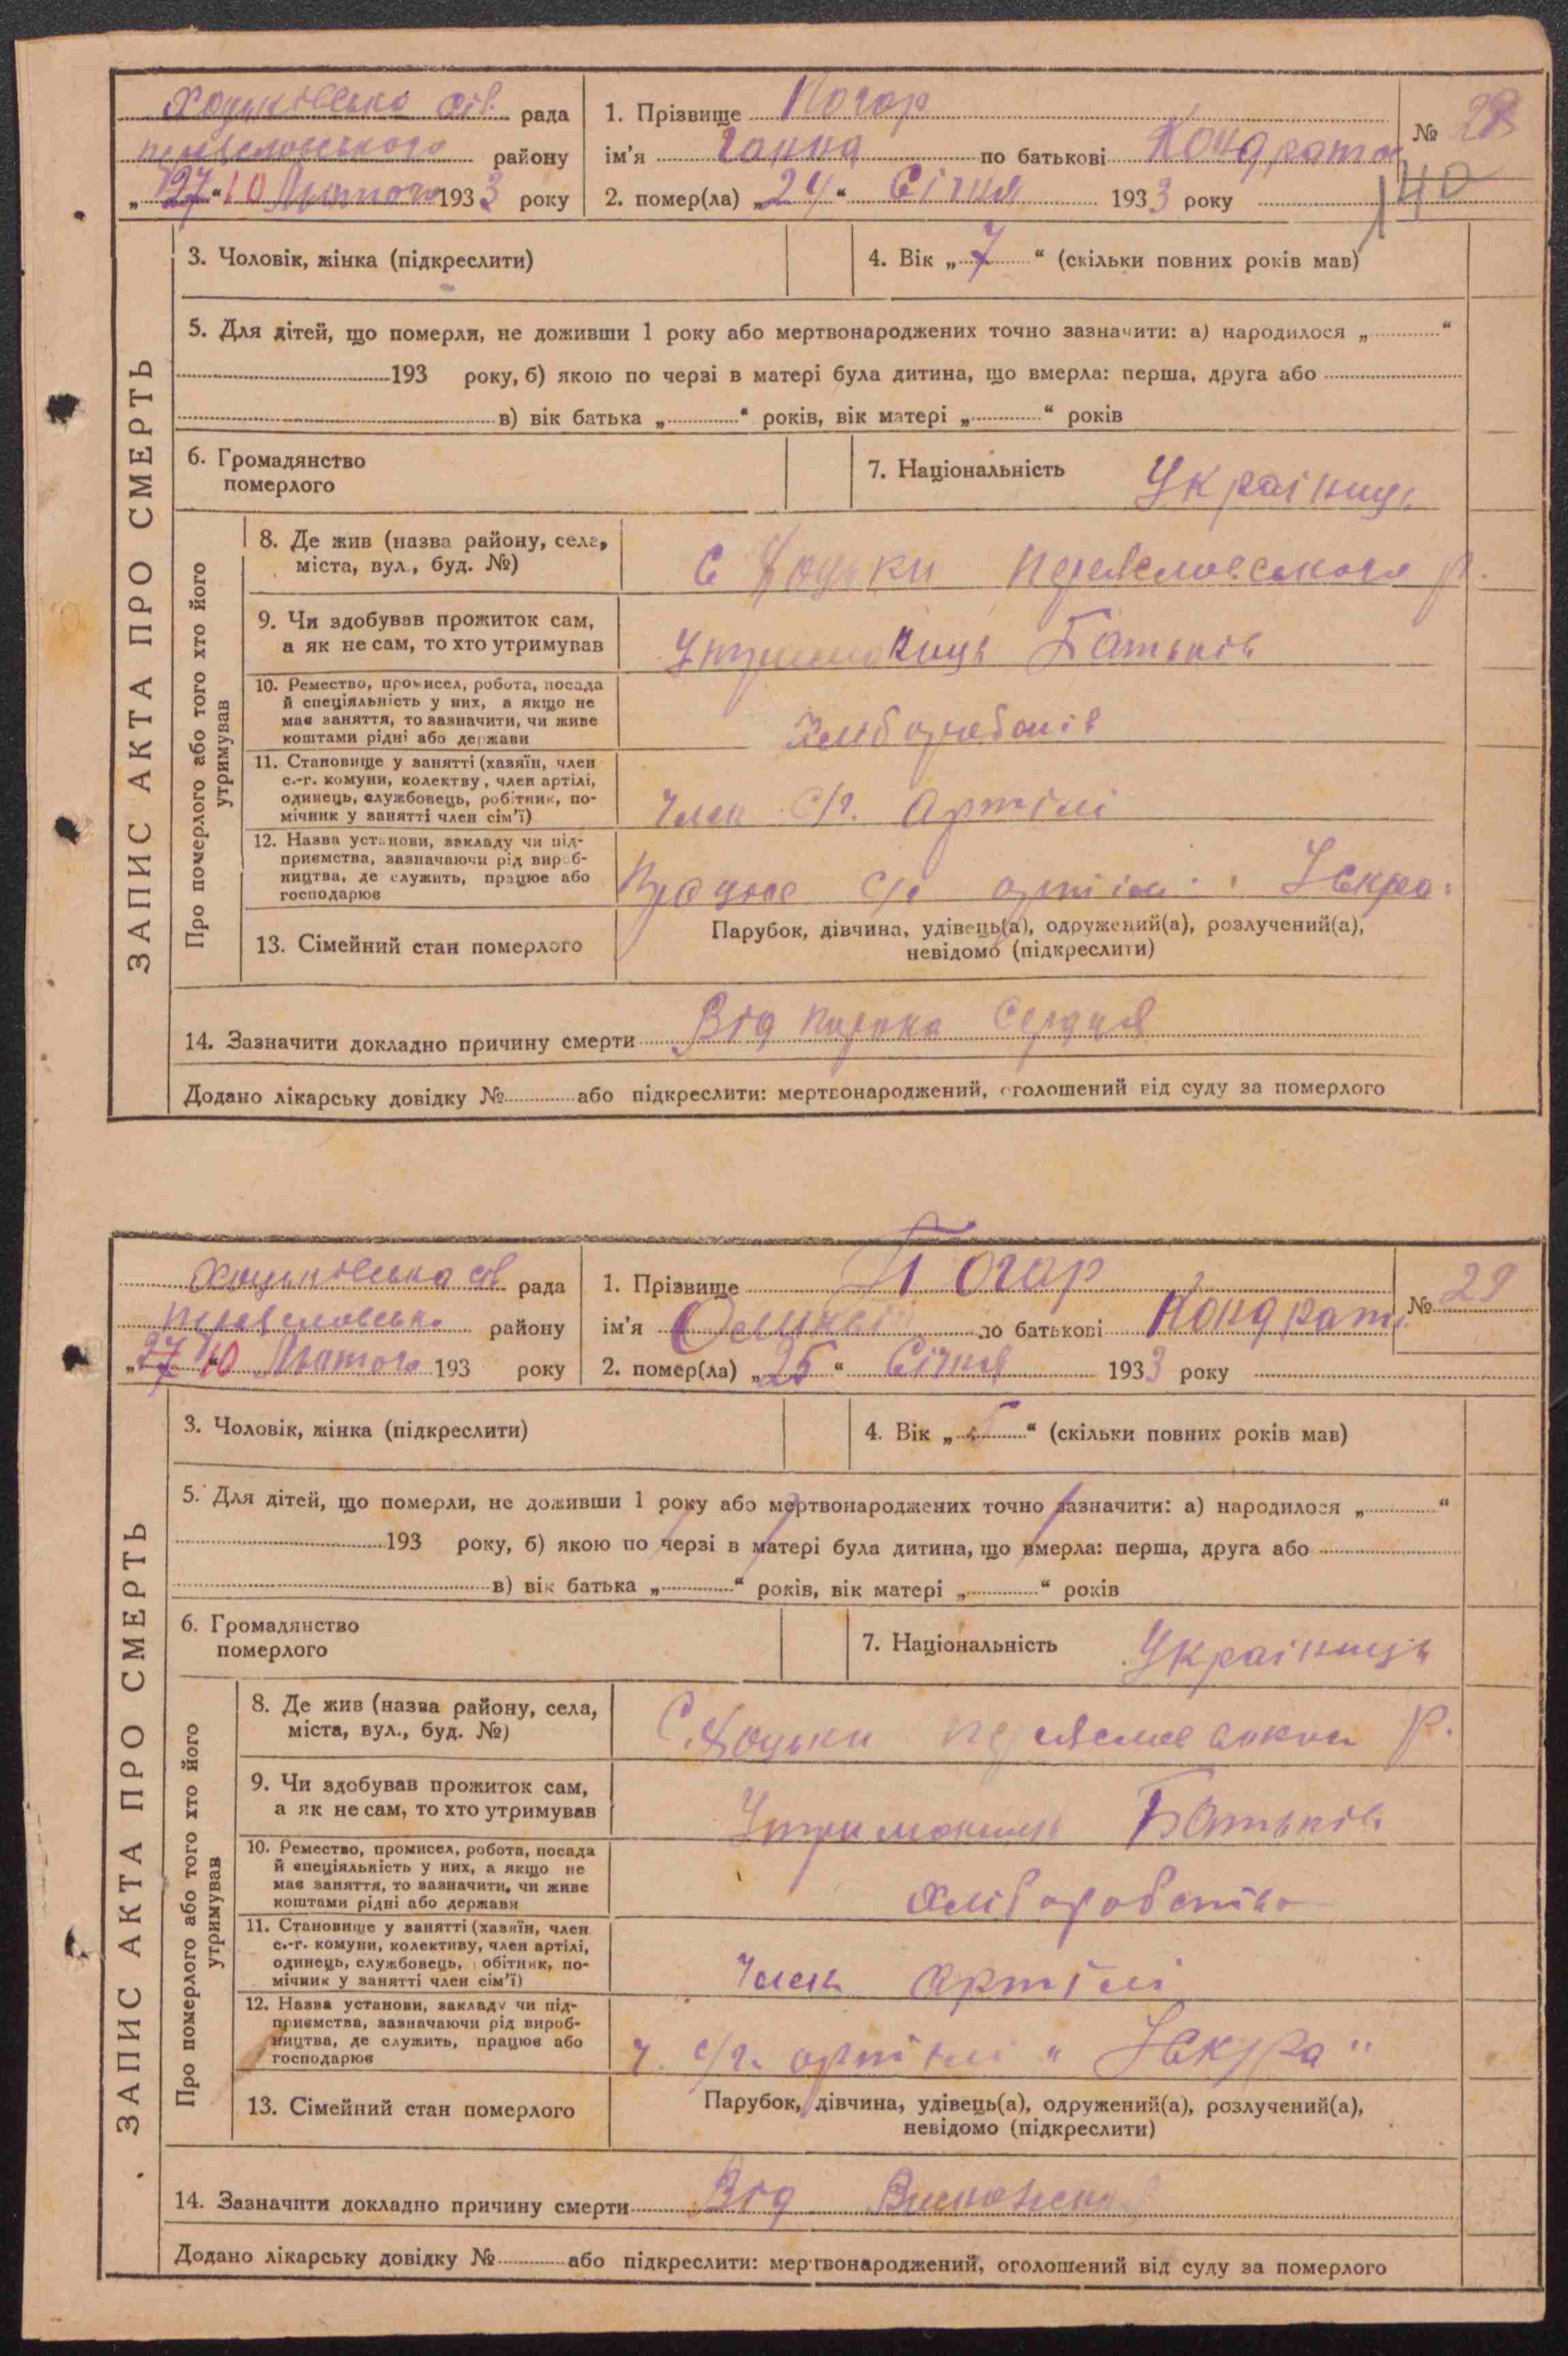 Хоцьківська сіл. рада
переяславського району
„27“ 10 Лютого 1933 року
1. Прізвище Погор
ім’я Ганна по батькові Кондратов
2. помер(ла) „24“ Січня 1933 року
№ 28
140
ЗАПИС АКТА ПРО СМЕРТЬ
3. Чоловік, жінка (підкреслити)
4. Вік „7“ (скільки повних років мав)
5. Для дітей, що померли, не доживши 1 року або мертвонароджених точно зазначити: а) народилося „ “
193 року, б) якою по черзі в матері була дитина, що вмерла: перша, друга або
в) вік батька „ “ років, вік матері „ “ років
6. Громадянство
померлого
7. Національність Українець
Про померлого або того хто його
утримував
8. Де жив (назва району, села,
міста, вул., буд. №)
С Хоцьки Переяславського р.
9. Чи здобував прожиток сам,
а як не сам, то хто утримував
Утриманець Батьків
10. Ремество, промисел, робота, посада
й спеціяльність у них, а якщо не
має заняття, то зазначити, чи живе
коштами рідні або держави
11. Становище у занятті (хазяїн, член
с.-г. комуни, колективу, член артілі,
одинець, службовець, робітник, по-
мічник у занятті член сім’ї)
Член С/г. Артілі
12. Назва установи, закладу чи під-
приємства, зазначаючи рід вироб-
ництва, де служить, працює або
господарює
Працює с/г артілі Іскра
13. Сімейний стан померлого
Парубок, дівчина, удівець(а), одружений(а), розлучений(а),
невідомо (підкреслити)
14. Зазначити докладно причину смерти Від порока Сердця
Додано лікарську довідку № або підкреслити: мертвонароджений, оголошений від суду за померлого
Хоцьківська сіл рада
Переяславсько району
„27“ 10 Лютого 193 року
1. Прізвище Погор
ім’я по батькові Кондрат
2. помер(ла) „25“ Січня 1933 року
№ 29
ЗАПИС АКТА ПРО СМЕРТЬ
3. Чоловік, жінка (підкреслити)
4. Вік „5“ (скільки повних років мав)
5. Для дітей, що померли, не доживши 1 року або мертвонароджених точно зазначити: а) народилося „ “
193 року, б) якою по черзі в матері була дитина, що вмерла: перша, друга або
в) вік батька „ “ років, вік матері „ “ років
6. Громадянство
померлого
7. Національність Українець
Про померлого або того хто його
утримував
8. Де жив (назва району, села,
міста, вул., буд. №)
С. Хоцьки Переяславського р.
9. Чи здобував прожиток сам,
а як не сам, то хто утримував
Утриманець Батьків
10. Ремество, промисел, робота, посада
й спеціяльність у них, а якщо не
має заняття, то зазначити, чи живе
коштами рідні або держави
Хліборобство
11. Становище у занятті (хазяїн, член
с.-г. комуни, колективу, член артілі,
одинець, службовець, робітник, по-
мічник у занятті член сім’ї)
Член Артілі
12. Назва установи, закладу чи під-
приємства, зазначаючи рід вироб-
ництва, де служить, працює або
господарює
Ч. с/г. артілі „Іскра“
13. Сімейний стан померлого
Парубок, дівчина, удівець(а), одружений(а), розлучений(а),
невідомо (підкреслити)
14. Зазначити докладно причину смерти Від Виснаження
Додано лікарську довідку № або підкреслити: мертвонароджений, оголошений від суду за померлого